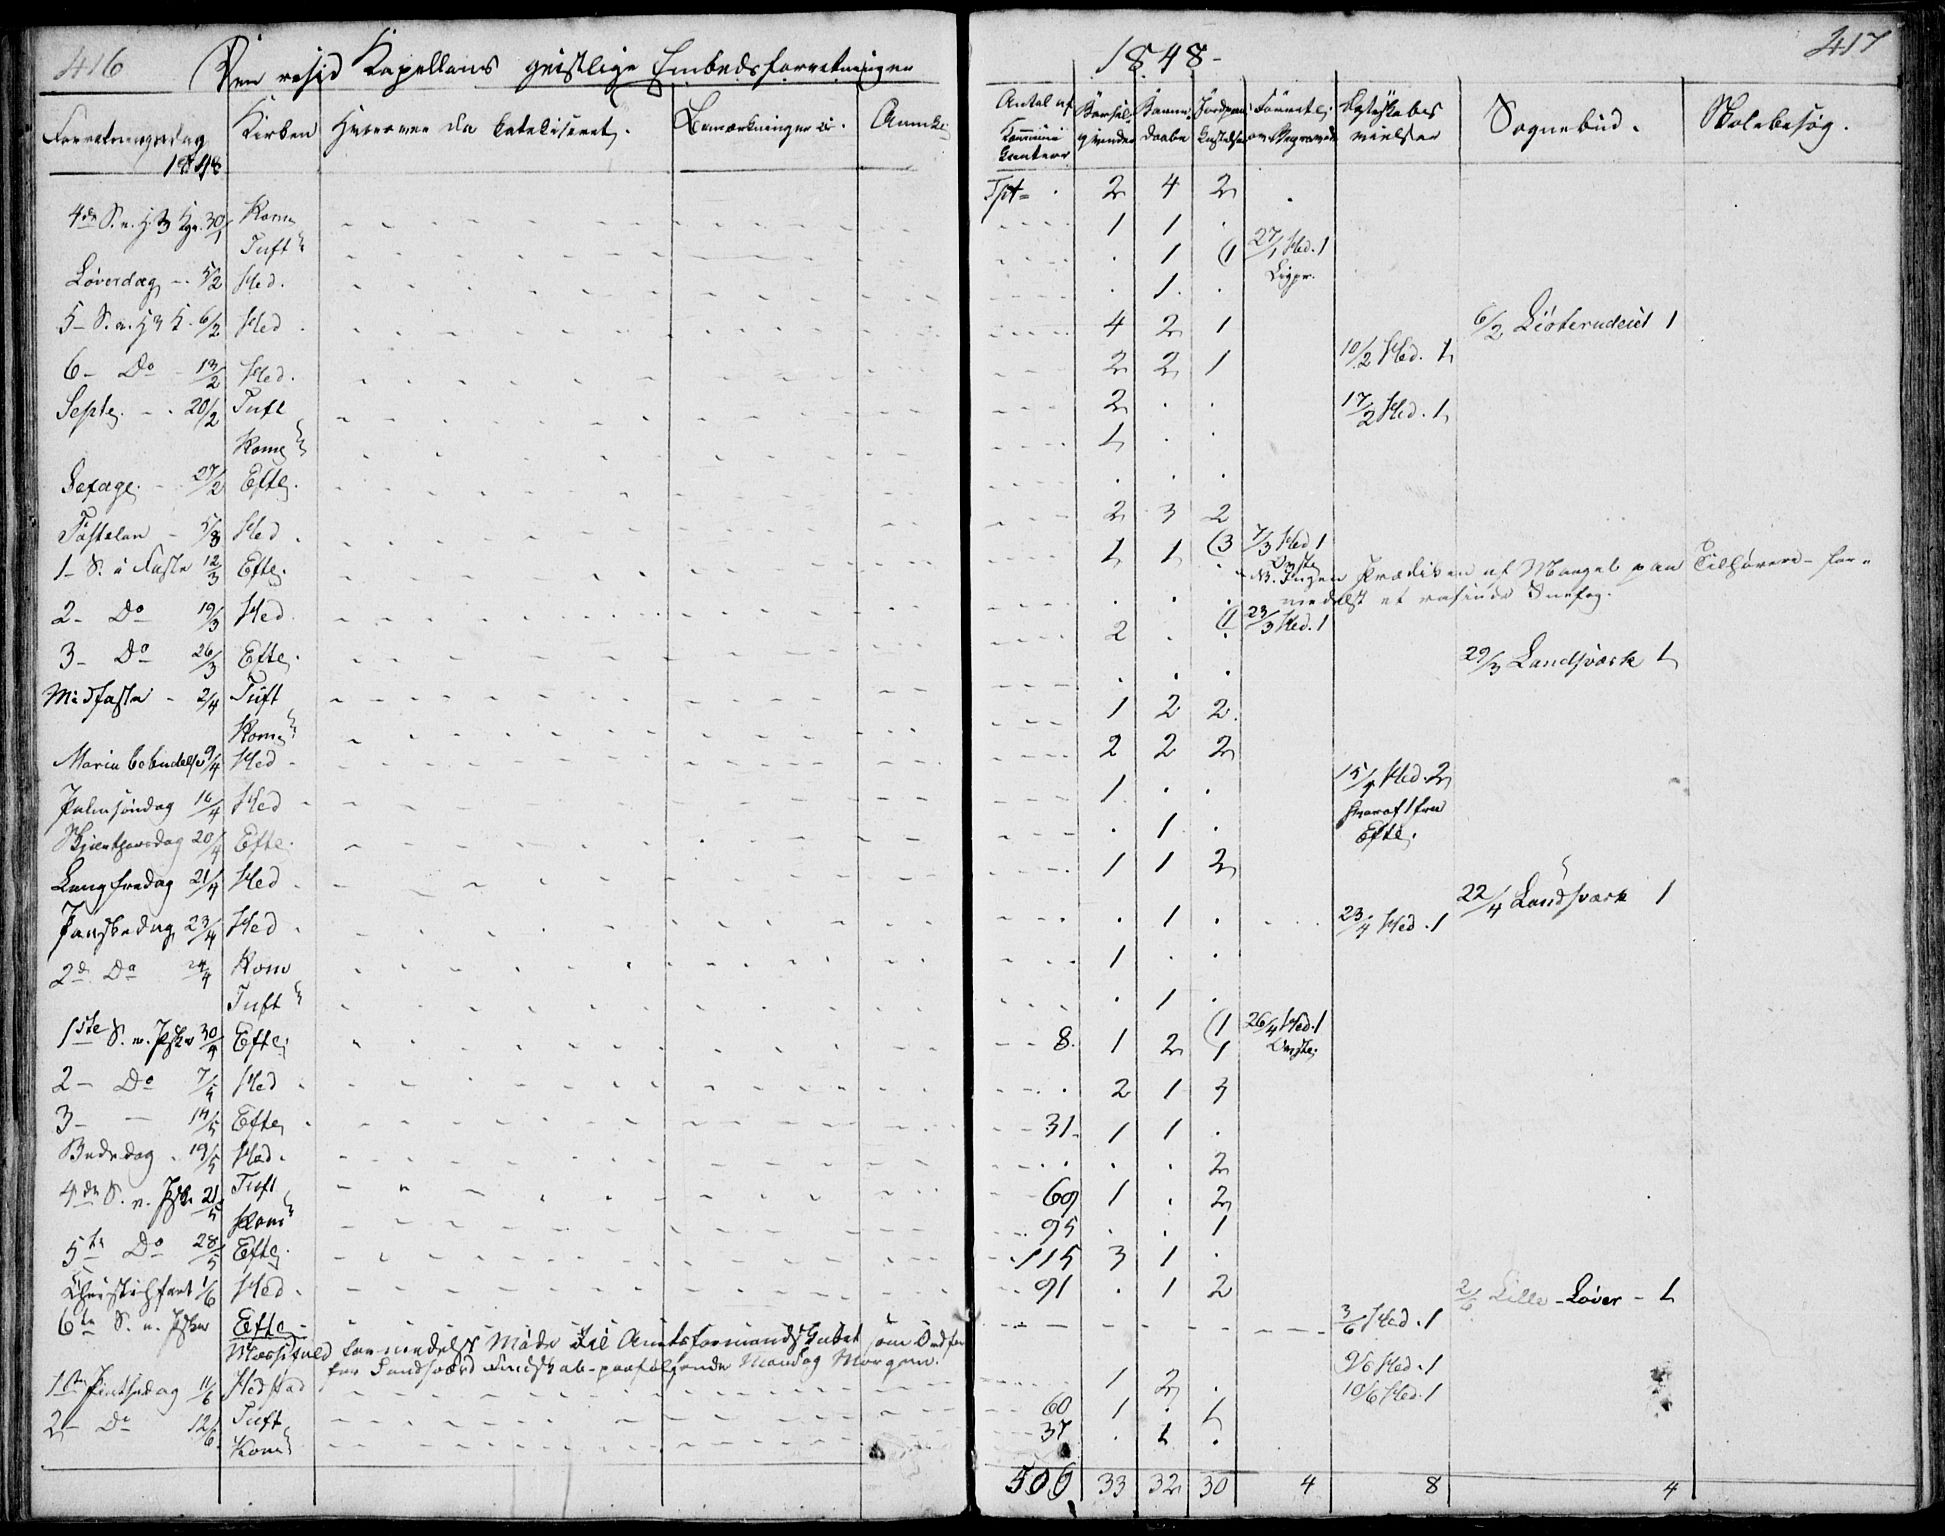 416 Den resid Kapellans geistlige Embedsforretninger
1848- 417
Forretningsdag Kirken Hvorover da Catekiseret. Bemærkninger Anmk.
1848
Antal af Kommunikanter Barselqvinder Barnedaabe Jordpaakastelser Ægteskabs vielser Sognebud. Skolebesøg.
Tpt= . 2 4 2 .
4de S. e. H. 3 Kgr. 30/1 Kom 1 1 .
Tuft . 1 (1 27/1 Hed. 1
Ligpr.
Løverdag 5/2 Hed. . 1 .
5- S. e. H 3 K. 6/2 Hed 4 2 1 6/2 Lioterudeiet 1
6- Do 13/2 Hed. 2 2 1 10/2 Hed. 1
Septg. 20/2 Tuft 2 . . 17/2 Hed. 1
Komn 1 . .
Sexage. 27/2 Efte. . . .
Fastelan 5/3 Hed. 2 3 2
1- S. i Faste 12/3 Efte. 1 1 (3 7/3 Hed 1
NB. Ingen Prædiken af Mangel paa Tilhørere- formedelst et rasende Snefog.
2- Do 19/3 Hed . . .
3- Do 26/3 Efte. 2 . (1 23/3 Hed. 1
29/3 Landsværk 1
Midfaste 2/4 Tuft . . .
Komn 1 2 2
Mariæ bebudelse 9/4 Hed 2 2 2
Palmsøndag 16/4 Hed 1 . . 15/4 Hed. 2
hvoraf 1 fra
Efte.
Skjærthorsdag 20/4 Efte. . 1 .
Langfredag 21/4 Hed 1 1 2
22/4 Landsværk 1
Paaskedag 23/4 Hed . 1 . 23/4 Hed. 1
2d. Do 24/4 Kom 1 . .
Tuft . 1 .
1ste S. e. Pske 30/4 Efte. 8. 1 2 (1 26/4 Hed. 1
1
2- Do 7/5 Hed . 2 1 3
3- — 14/5 Efte. 31. 1 1 .
Bededag 19/5 Hed. . . . 2
4de S. e. Pske 21/5 Tuft 69 1 . 2
Kom 95 . . 1
5te Do 28/5 Efte. 115 3 1 .
Christi hfart 1/6 Hed. 91 . 1 2 2/6 Lille-Løver - 1
6te S. e. Pske Efte. 3/6 Hed. 1
Messefald formedelst Møde til Amtsformandskabet som Ordfører
for Sandsværd Formdskab- paafølgende Mandag Morgen. 9/6 Hed. 1
1ste Pintsedag 11/6 Hedstad 1 2 . 10/6 Hed. 1
2- Do 12/6 Tuft 60 1 . 1
Kom 37 . 1 .
506 33 32 30 4 8 4